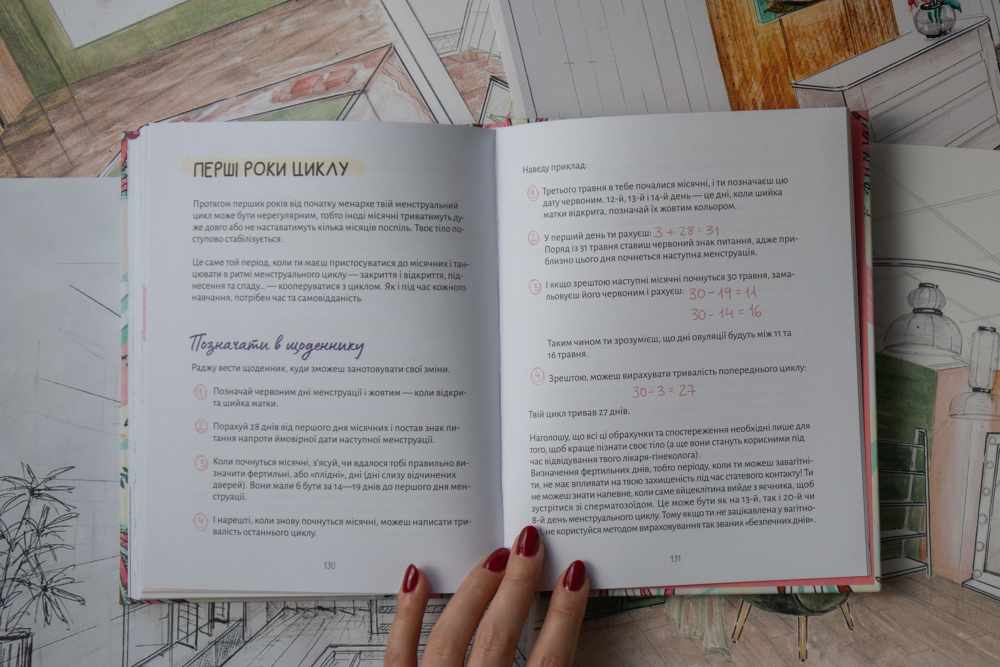 ПЕРШІ РОКИ ЦИКЛУ
Протягом перших років від початку менархе твій менструальний
цикл може бути нерегулярним, тобто іноді місячні триватимуть ду-
же довго або не наставатимуть кілька місяців поспіль. Твоє тіло по-
ступово стабілізується.
Це саме той період, коли ти маєш пристосуватися до місячних і тан-
цювати в ритмі менструального циклу — закриття і відкриття, під-
несення та спаду… — кооперуватися з циклом. Як і під час кожного
навчання, потрібен час та самовідданість.
Позначати в щоденнику
Раджу вести щоденник, куди зможеш занотовувати свої зміни.
1 Позначай червоним дні менструації і жовтим — коли відкри-
та шийка матки.
2 Порахуй 28 днів від першого дня місячних і постав знак пи-
тання напроти ймовірної дати наступної менструації.
3 Коли почнуться місячні, з'ясуй, чи вдалося тобі правильно ви-
значити фертильні, або «плідні», дні (дні слизу відчинених
дверей). Вони мали б бути за 14—19 днів до першого дня мен-
струації.
4 І нарешті, коли знову почнуться місячні, можеш написати три-
валість останнього циклу.
130
Наведу приклад:
1 Третього травня в тебе почалися місячні, і ти позначаєш цю
дату червоним. 12-й, 13-й і 14-й день — це дні, коли шийка
матки відкрита, позначай їх жовтим кольором.
2 У перший день ти рахуєш: 3 + 28 = 31
Поряд із 31 травня ставиш червоний знак питання, адже при-
близно цього дня почнеться наступна менструація.
3 І якщо зрештою наступні місячні почнуться 30 травня, зама-
льовуєш його червоним і рахуєш: 30 – 19 = 11
30 - 14 = 16
Таким чином ти зрозумієш, що дні овуляції будуть між 11 та
16 травня.
4 Зрештою, можеш вирахувати тривалість попереднього циклу:
30 - 3 = 27
Твій цикл тривав 27 днів.
Наголошу, що всі ці обрахунки та спостереження необхідні лише для
того, щоб краще пізнати своє тіло (а ще вони стануть корисними під
час відвідування твого лікаря-гінеколога).
Визначення фертильних днів, тобто періоду, коли ти можеш завагітні-
ти, не має впливати на твою захищеність під час статевого контакту! Ти
не можеш знати напевне, коли саме яйцеклітина вийде з яєчника, щоб
зустрітися зі сперматозоїдом. Це може бути як на 13-й, так і 20-й чи
8-й день менструального циклу. Тому якщо ти не зацікавлена у вагітно-
не користуйся методом вираховування так званих «безпечних днів».
131